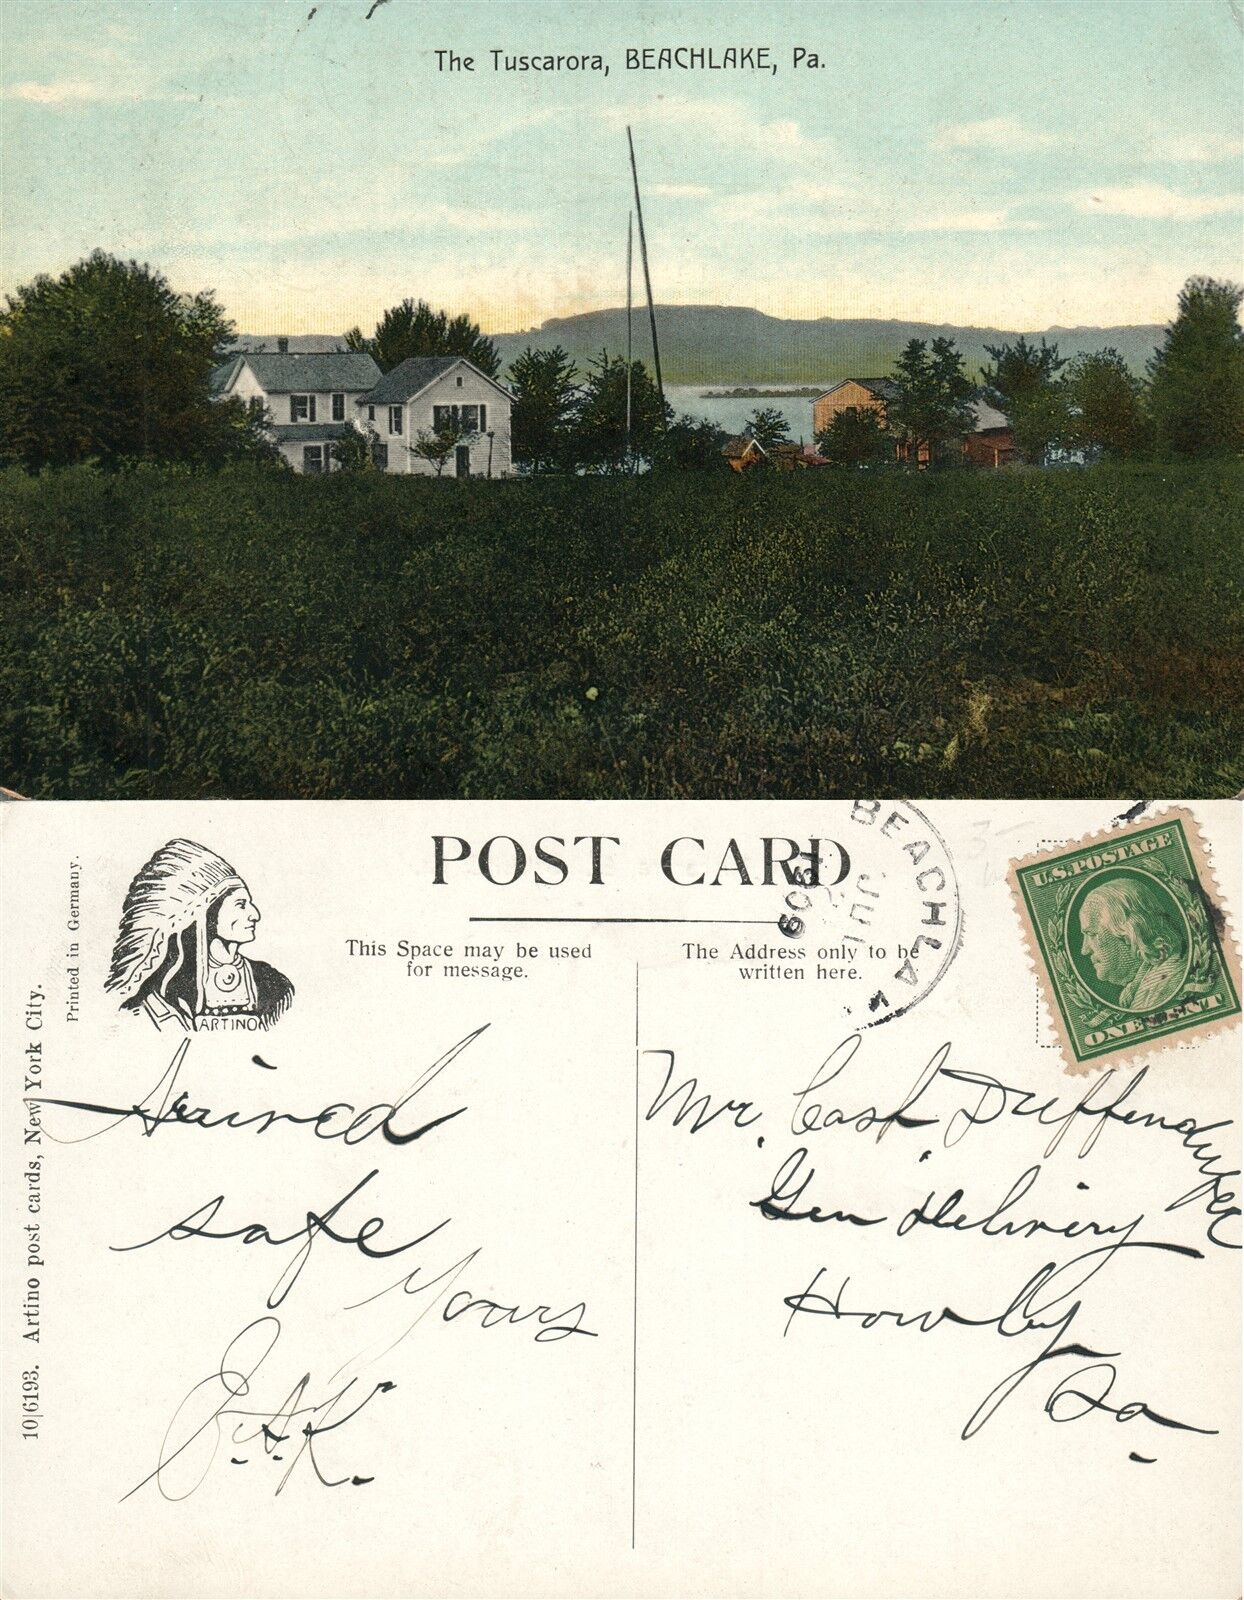 The Tuscarora, BEACHLAKE, Pa.
POST CARD
This Space may be used
for message.
The Address only to be
written here.
BEACHLA
JUL
1909
U.S. POSTAGE
ONE CENT
ARTINO
Printed in Germany.
10|6193. Artino post cards, New York City.
Arrived
safe
Yours
Mr. Cash Duffendyke
Gen Delivery
Hawley
Pa